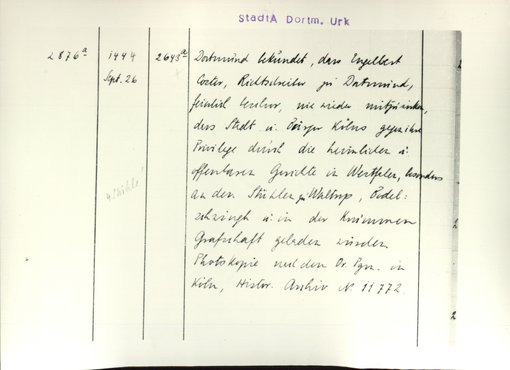 StadtA Dortm. Urk
2876a 1444 Sept. 26 2643a
Dortmund bekundet, dass Engelbert
Coster, Richtschreiber zu Dortmund,
feierlich beschw., nie wieder mitzuwirken,
dass Stadt u. Bürger Kölns gegen ihre
Privilege durch die heimlichen u.
offenbaren Gerichte in Westfalen, besonders
an den Stühlen zu Waltrop, Bodel-
schwingh u. in der Krummen
Grafschaft geladen würden
Photokopie nach dem Or. Pgm. in
Köln, Histor. Archiv N. 11772.
"Stühle"
2
2